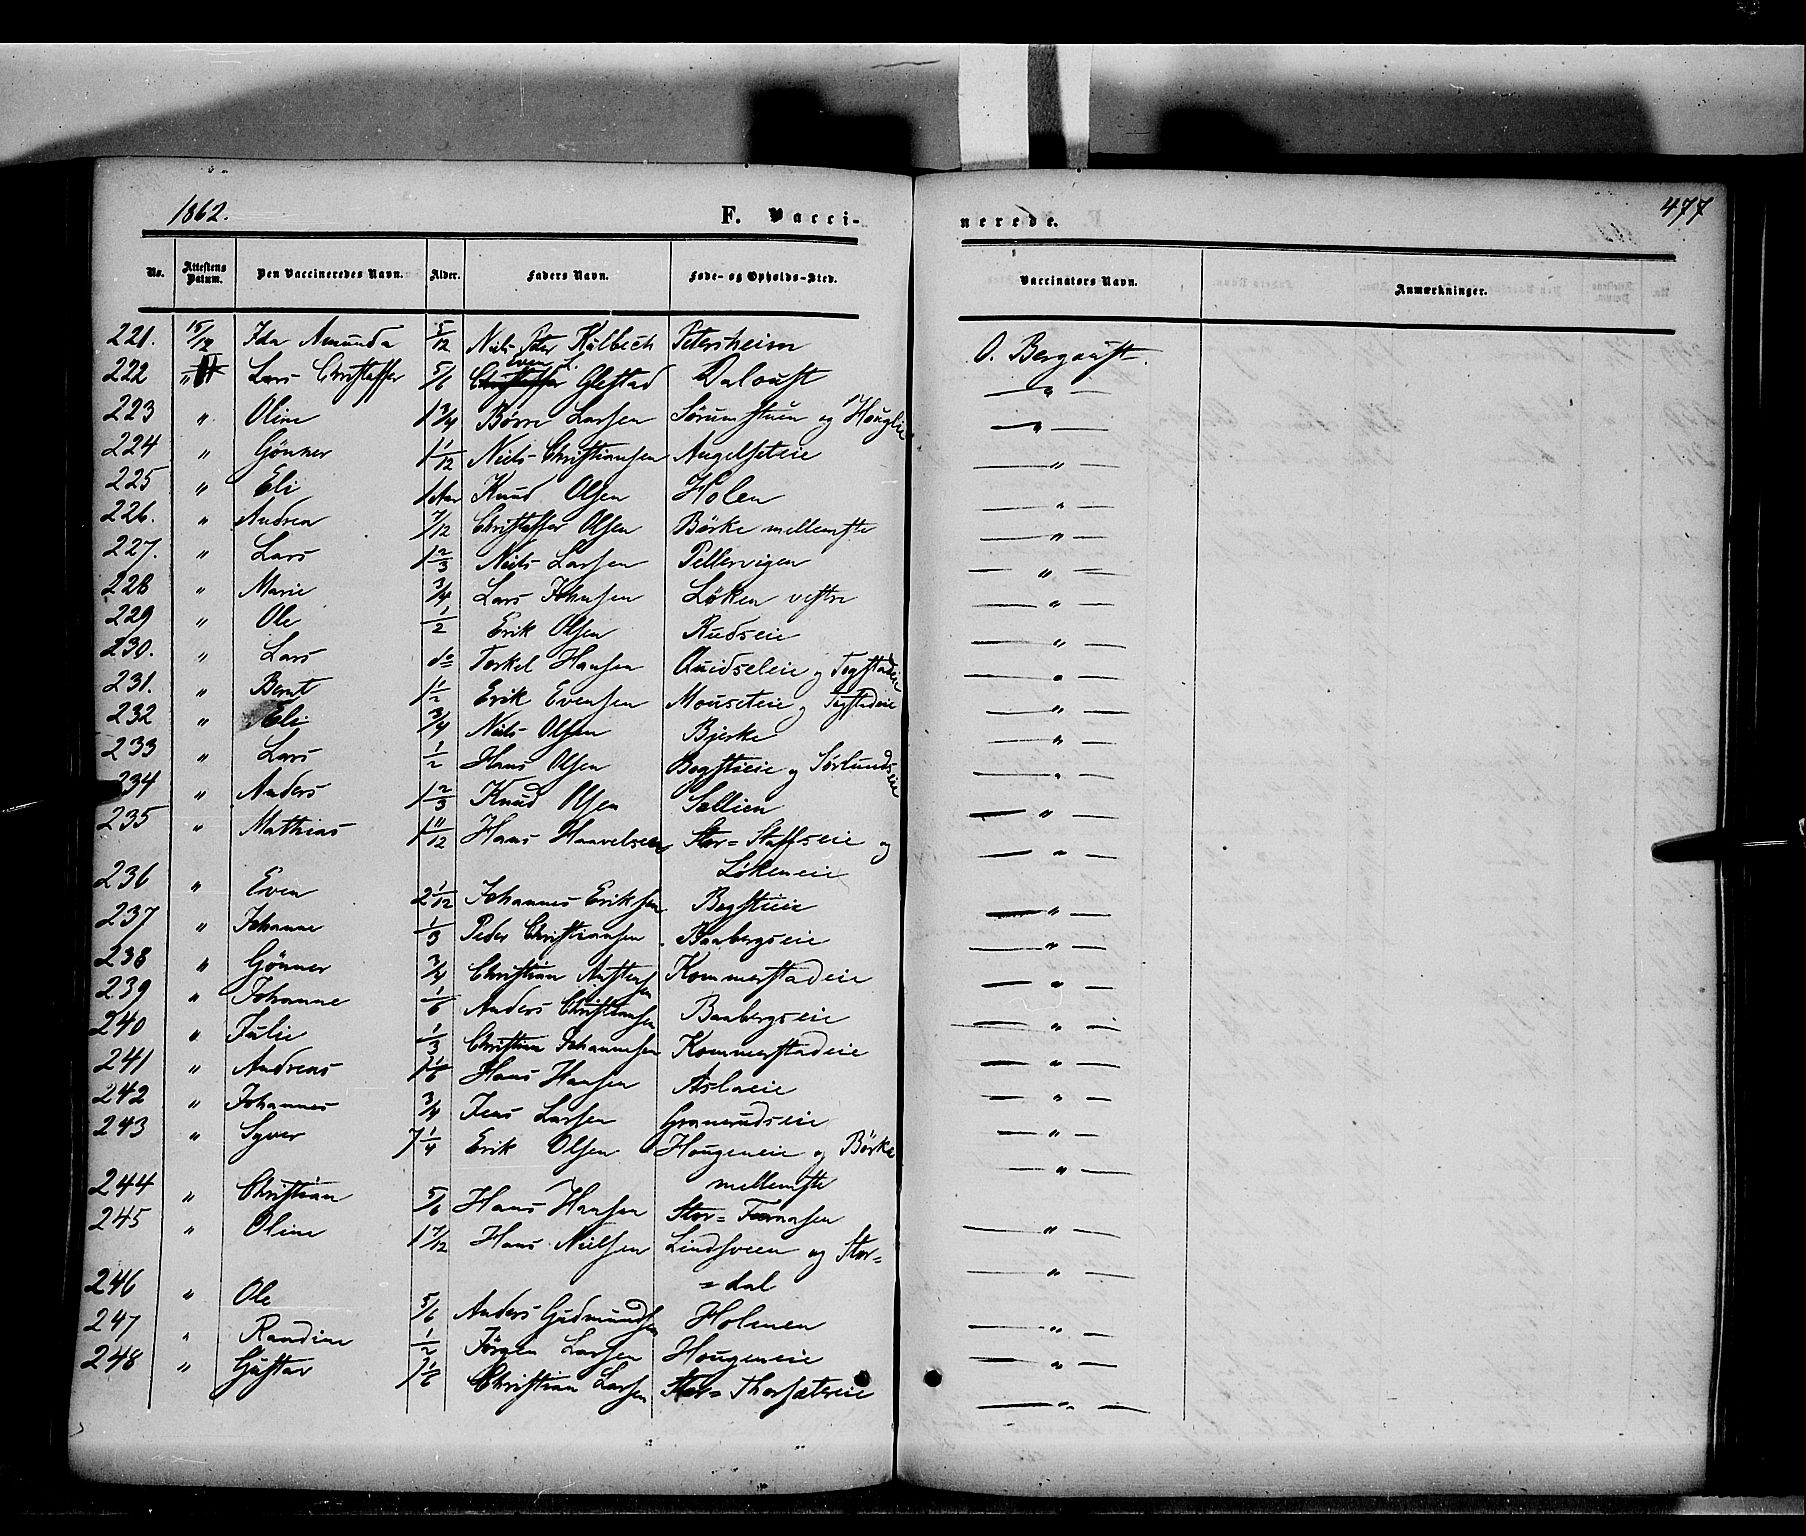 1862. F. Vacci- nerede. 477
No. Attestens Datum. Den Vaccineredes Navn. Alder. Faders Navn. Føde- og Opholds-Sted. Vaccinators Navn. Anmærkninger.
221. 15/12 Ida Amunda 5/12 Niels Peter Külbech Petersheim O. Bergaust.
222 " Lars Christoffer 5/6 Even L. Glestad Daloust — " —
223 " Oline 1 3/4 Børre Larsen Sörumstuen og Houglie — " —
224 " Gönner 1 1/12 Niels Christiansen Angelseteie — " —
225 " Eli 1 Aar Knud Olsen Holen — " —
226. " Andrea 7/12 Christoffer Olsen Börke mellemste — " —
227. " Lars 1 2/3 Niels Larsen Pellervigen — " —
228 " Marie 3/4 Lars Johnsen Løken vestre — " —
229 " Ole 1/2 Erik Olsen Rudseie — " —
230. " Lars do Torkel Hansen Quidseleie og Togstadeie — " —
231. " Bernt 1 1/2 Erik Evensen Mouseteie og Togstadeie — " —
232 " Eli 3/4 Niels Olsen Bjerke — " —
233 " Lars 1/2 Hans Olsen Bogstueie og Sørlundseie — " —
234 " Anders 1 2/3 Knud Olsen Sællien — " —
235 " Mathias 1 11/12 Hans Haavelsen Stor= Staffseie og — " —
Løkeneie
236 " Even 2 1/12 Johannes Eriksen Bogstueie — " —
237 " Johanne 1/3 Peder Christiansen Baabergseie — " —
238 " Gönner 3/4 Christian Anstensen Kommerstadeie — " —
239 " Johanne 1/6 Anders Christiansen Baabergseie — " —
240 " Julie 1/3 Christian Johannesen Kommerstadeie — " —
241 " Andreas 1 1/6 Hans Hansen Aslaeie — " —
242 " Johannes 3/4 Jens Larsen Granerudseie — " —
243 " Syver 7 1/4 Erik Olsen Hougeneie og Börke — " —
mellemste
244 " Christian 5/6 Hans Hansen Stor= Fornasen — " —
245 " Oline 1 7/12 Hans Nielsen Lindsveen og Stor= — " —
=dal
246 " Ole 5/6 Anders Gudmundsen Holmen — " —
247 " Randine 1/2 Jörgen Larsen Hougeneie — " —
248 " Gustav 1 1/6 Christian Larsen Stor= Thorsætereie — " —